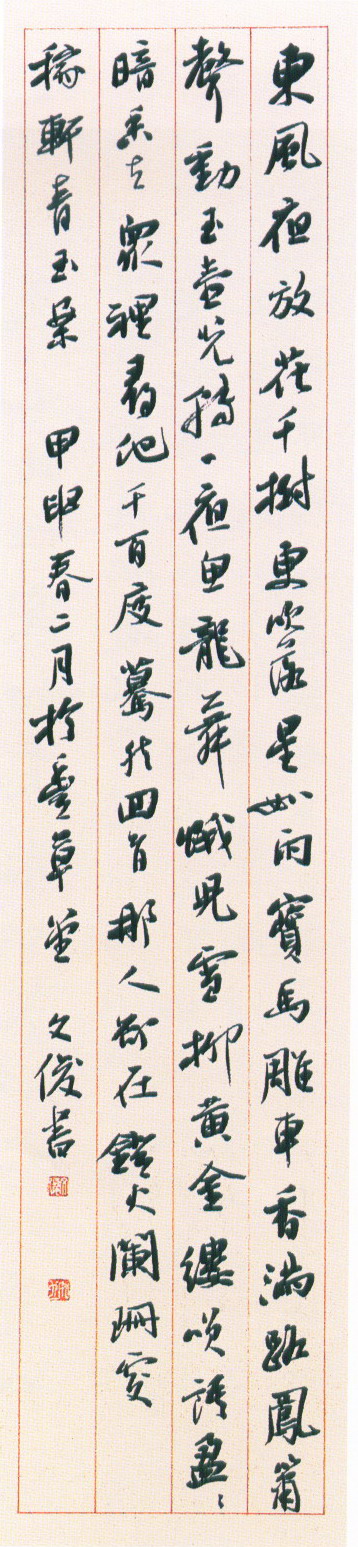 東風夜放花千樹更吹落星如雨寶馬雕車香滿路鳳簫
聲動玉壺光轉一夜魚龍舞蛾兒雪柳黃金縷笑語盈盈
暗香去眾裡尋他千百度驀然回首那人卻在燈火闌珊處
稼軒青玉案 甲申春二月於 草堂 文俊書